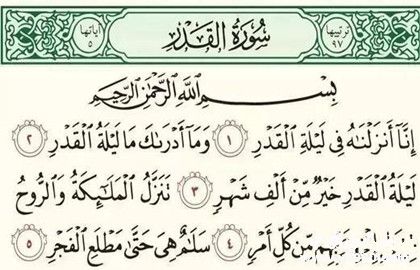 ترتيبها ٩٧ سُورَةُ الْقَدْرِ آياتها ٥
بِسْمِ اللَّهِ الرَّحْمَٰنِ الرَّحِيمِ
إِنَّا أَنزَلْنَاهُ فِي لَيْلَةِ الْقَدْرِ ١ وَمَا أَدْرَىٰكَ مَا لَيْلَةُ الْقَدْرِ ٢
لَيْلَةُ الْقَدْرِ خَيْرٌ مِّنْ أَلْفِ شَهْرٍ ٣ تَنَزَّلُ الْمَلَٰٓئِكَةُ وَالرُّوحُ
مِّن كُلِّ أَمْرٍ ٤ سَلَٰمٌ هِيَ حَتَّىٰ مَطْلَعِ الْفَجْرِ ٥